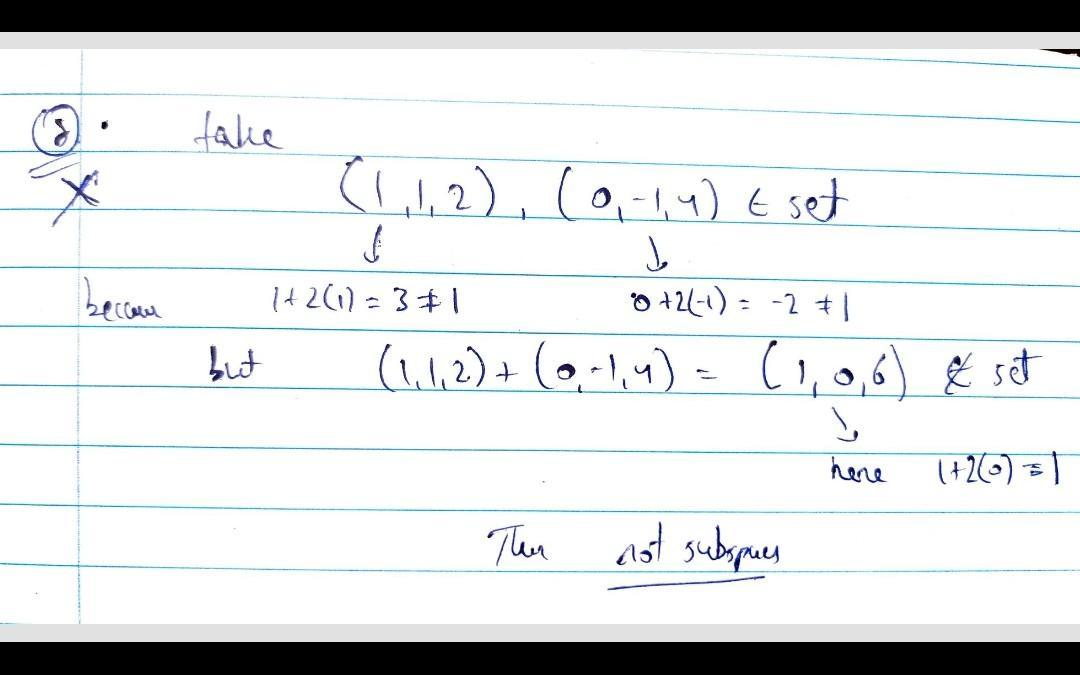 8. take
X (1,1,2), (0,-1,4) ∈ set
↓ ↓
because 1+2(1) = 3 ≠ 1 0+2(-1) = -2 ≠ 1
but (1,1,2)+(0,-1,4) = (1,0,6) ∉ set
↓
here 1+2(0) = 1
Thus not subspaces